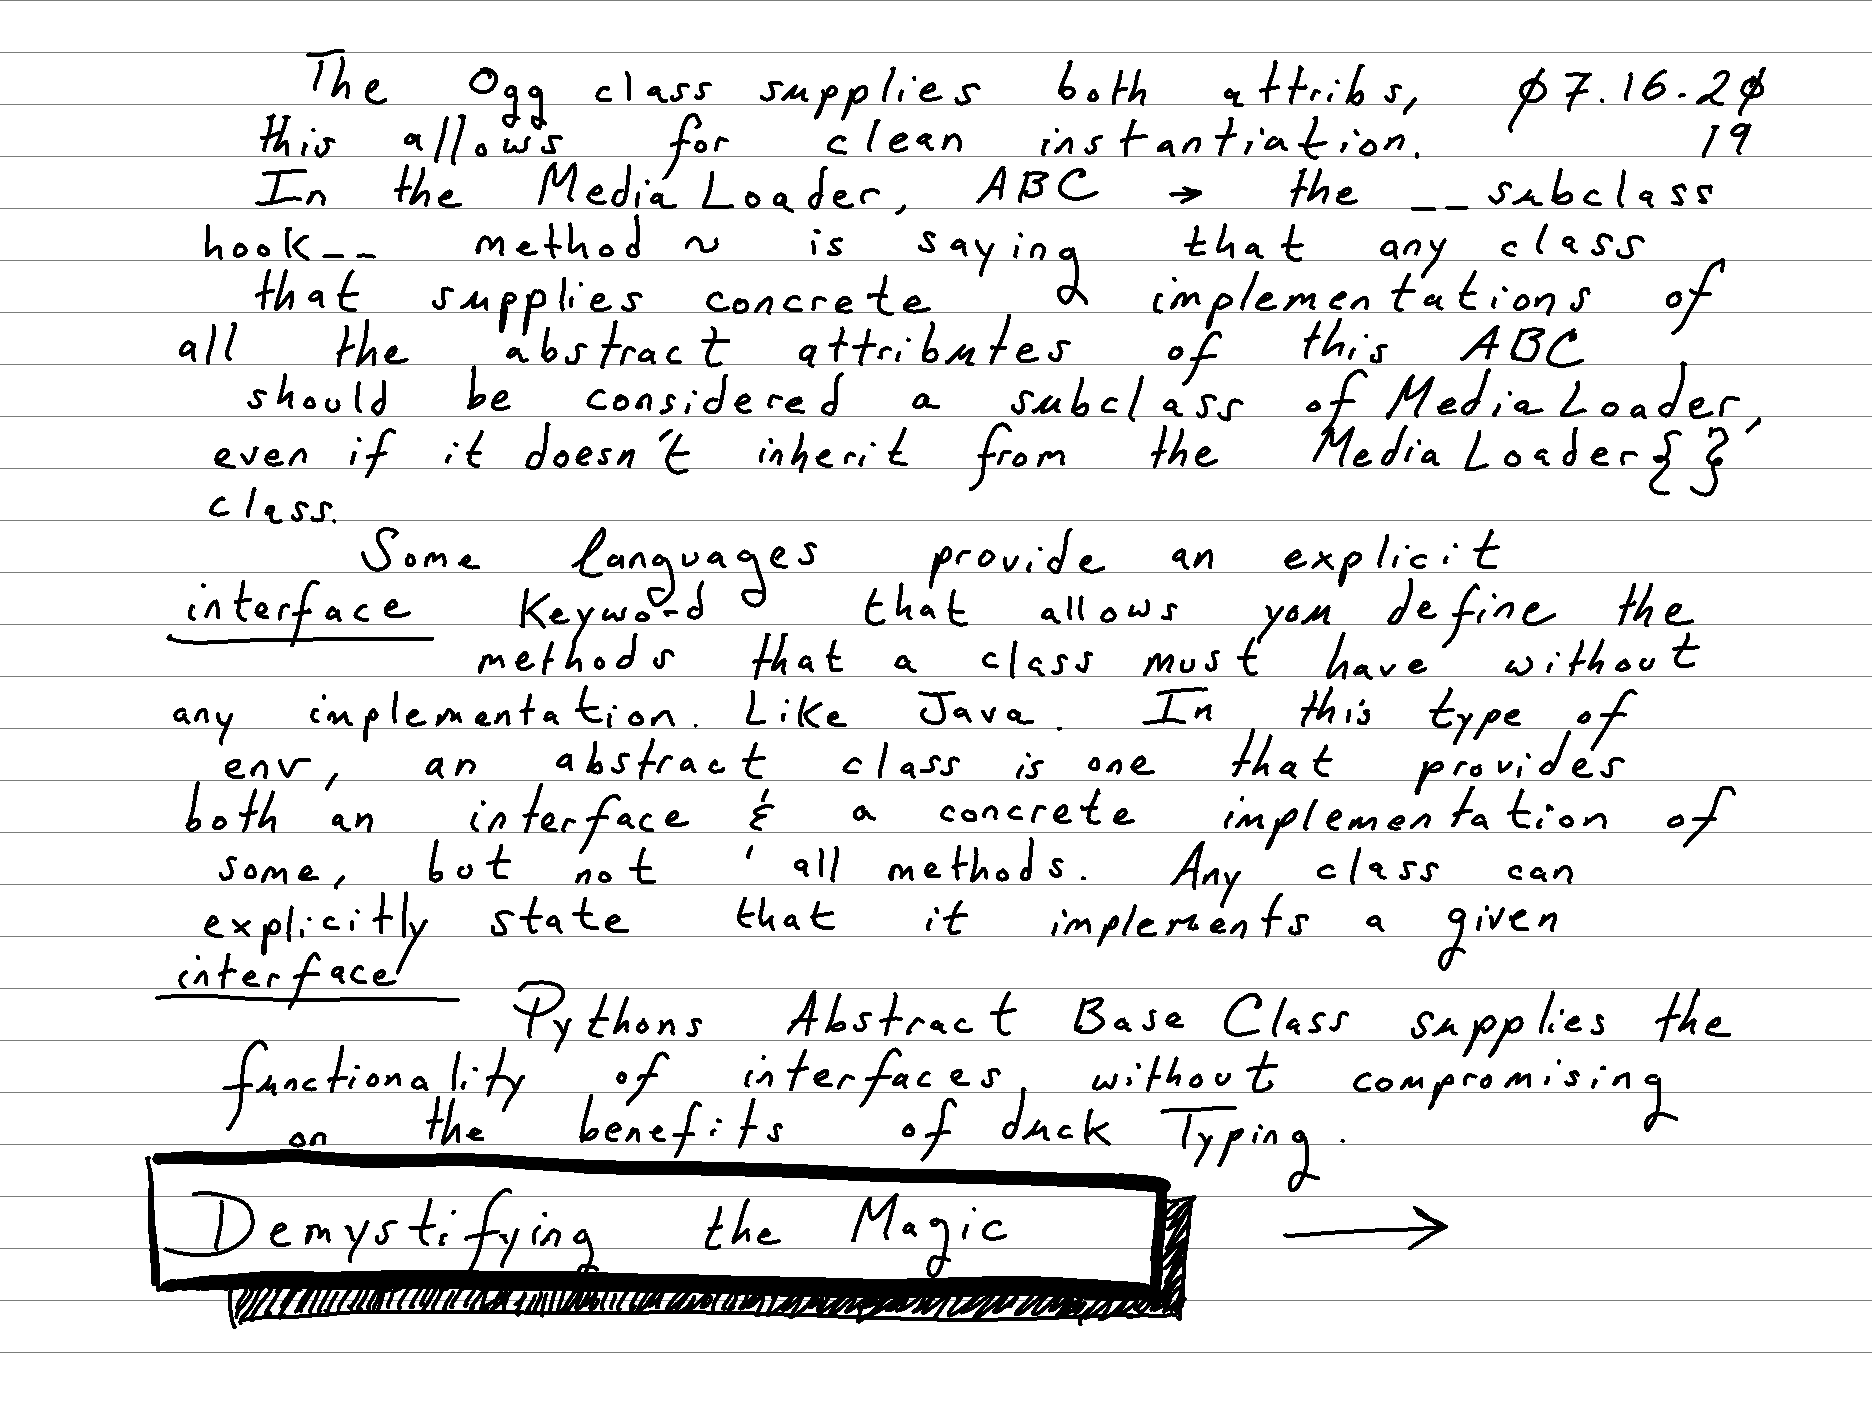 The Ogg class supplies both attribs, 07.16.20
this allows for clean instantiation. 19
In the MediaLoader, ABC → the __subclass
hook__ method ~ is saying that any class
that supplies concrete implementations of
all the abstract attributes of this ABC
should be considered a subclass of MediaLoader,
even if it doesn't inherit from the MediaLoader{}
class.
Some languages provide an explicit
interface keyword that allows you define the
methods that a class must have without
any implementation. Like Java. In this type of
env, an abstract class is one that provides
both an interface & a concrete implementation of
some, but not ' all methods. Any class can
explicitly state that it implements a given
interface
Pythons Abstract Base Class supplies the
functionality of interfaces, without compromising
on the benefits of duck Typing.
Demystifying the Magic →